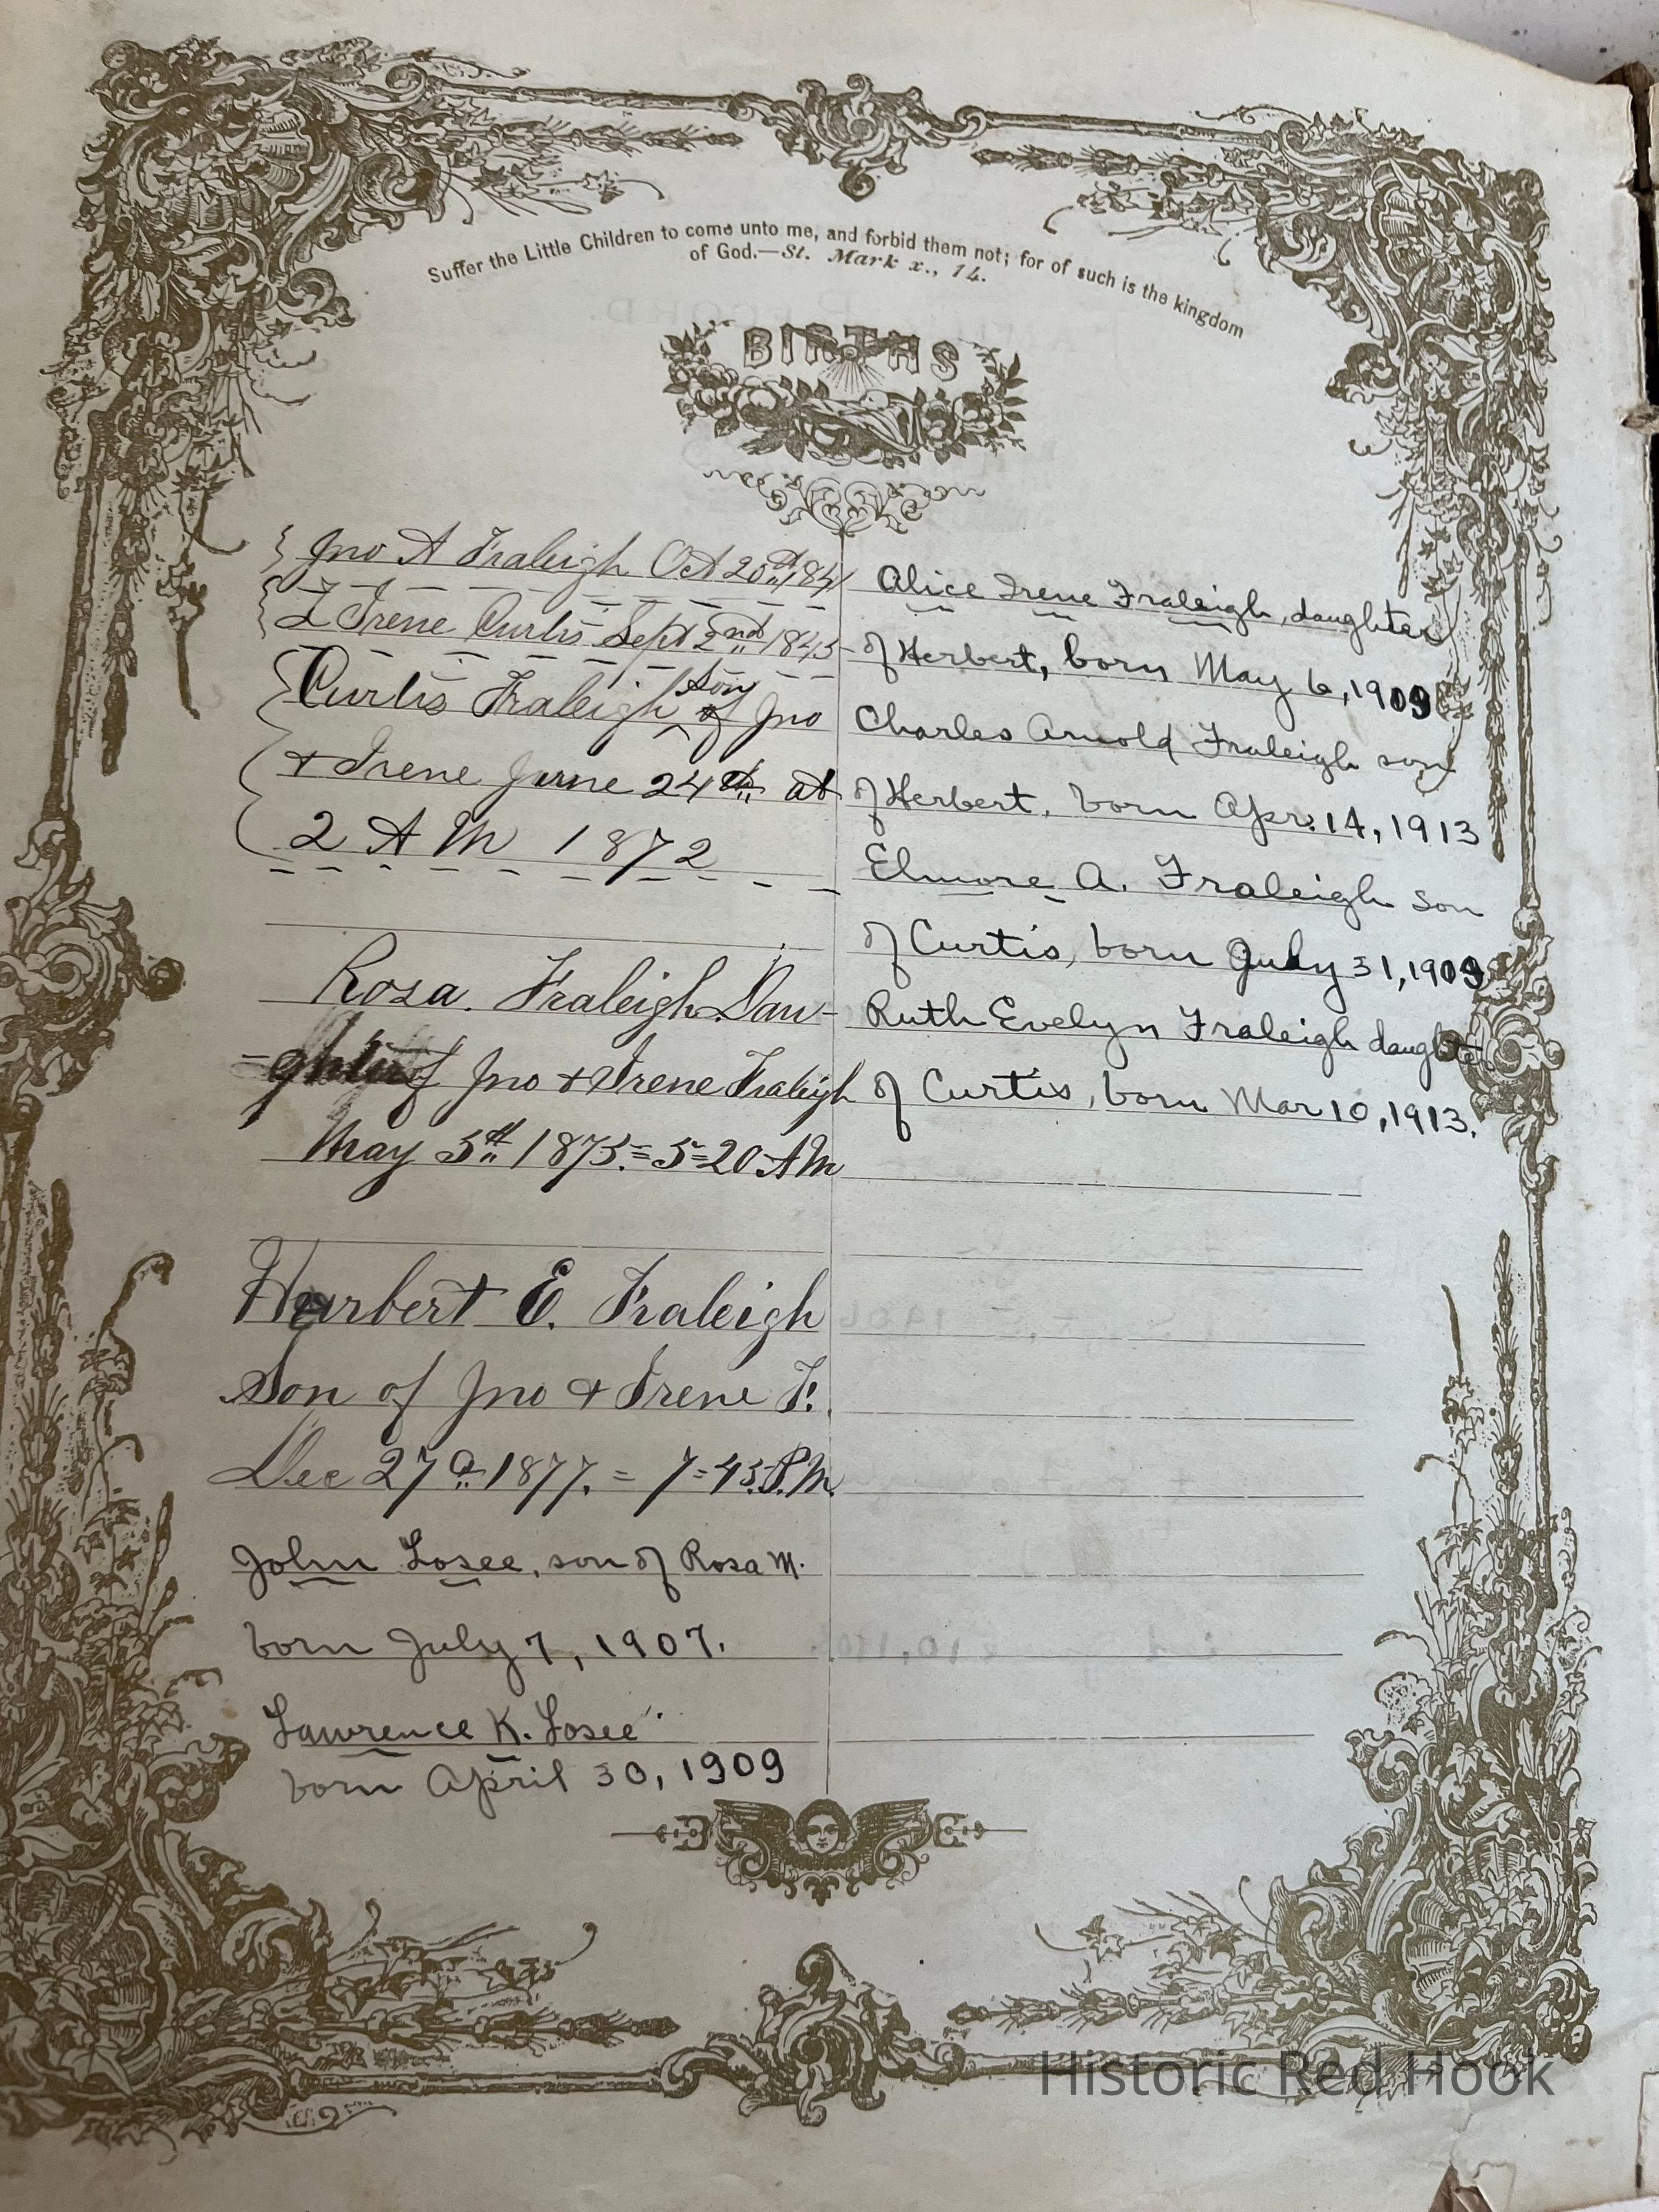 Suffer the Little Children to come unto me, and forbid them not; for of such is the kingdom
of God.—St. Mark x., 14.
BIRTHS
Jno A Fraleigh Oct 20th
L Irene Curtis Sept 2nd 1845
Curtis Fraleigh son of Jno
+ Irene June 24th at
2 A M 1872
Rosa. Fraleigh Dau-
-ghter of Jno + Irene Fraleigh
May 5th 1875.=5=20 AM
Herbert E. Fraleigh
Son of Jno + Irene F.
Dec 27th 1877. = 7=45.P.M.
John Losee, son of Rosa M.
born July 7, 1907.
Lawrence K. Losee
born April 30, 1909
Alice Irene Fraleigh, daughter
of Herbert, born May 6, 1909
Charles Arnold Fraleigh son
of Herbert, born Apr. 14, 1913
Elmore A. Fraleigh son
of Curtis, born July 31, 1909
Ruth Evelyn Fraleigh daughter
of Curtis, born Mar 10, 1913.
Historic Red Hook